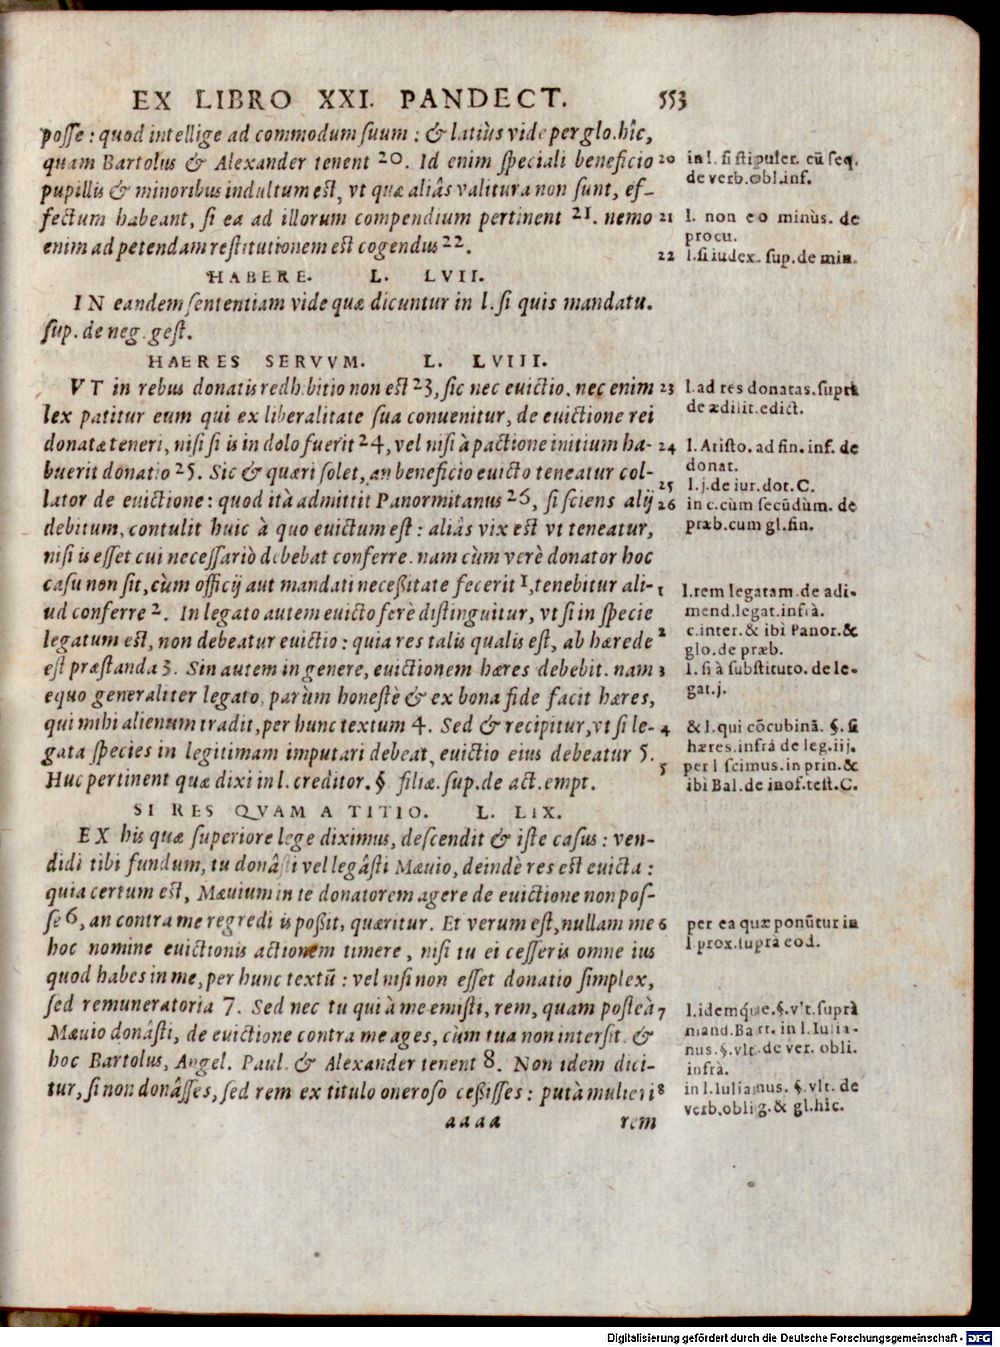 EX LIBRO XXI. PANDECT. 553
posse: quod intellige ad commodum suum: & latiùs vide per glo. hîc,
quam Bartolus & Alexander tenent 20. Id enim speciali beneficio
pupillis & minoribus indultum est, vt quæ aliâs valitura non sunt, ef-
fectum habeant, si ea ad illorum compendium pertinent 21. nemo
enim ad petendam restitutionem est cogendus 22.
HABERE. L. LVII.
IN eandem sententiam vide quæ dicuntur in l. si quis mandatu.
sup. de neg. gest.
HAERES SERVVM. L. LVIII.
VT in rebus donatis redhibitio non est 23, sic nec euictio. nec enim
lex patitur eum qui ex liberalitate sua conuenitur, de euictione rei
donatæ teneri, nisi si is in dolo fuerit 24, vel nisi à pactione initium ha-
buerit donatio 25. Sic & quæri solet, an beneficio euicto teneatur col-
lator de euictione: quod ità admittit Panormitanus 26, si sciens alij
debitum, contulit huic à quo euictum est: aliâs vix est vt teneatur,
nisi is esset cui necessariò debebat conferre. nam cùm verè donator hoc
casu non sit, cùm officij aut mandati necessitate fecerit 1, tenebitur ali-
ud conferre 2. In legato autem euicto ferè distinguitur, vt si in specie
legatum est, non debeatur euictio: quia res talis qualis est, ab hærede
est præstanda 3. Sin autem in genere, euictionem hæres debebit. nam
equo generaliter legato, parùm honestè & ex bona fide facit hæres,
qui mihi alienum tradit, per hunc textum 4. Sed & recipitur, vt si le-
gata species in legitimam imputari debeat, euictio eius debeatur 5.
Huc pertinent quæ dixi in l. creditor. § filiæ. sup. de act. empt.
SI RES QVAM A TITIO. L. LIX.
EX his quæ superiore lege diximus, descendit & iste casus: ven-
didi tibi fundum, tu donâsti vel legâsti Mæuio, deindè res est euicta:
quia certum est, Mæuium in te donatorem agere de euictione non pos-
se 6, an contra me regredi is possit, quæritur. Et verum est, nullam me
hoc nomine euictionis actionem timere, nisi tu ei cesseris omne ius
quod habes in me, per hunc textū: vel nisi non esset donatio simplex,
sed remuneratoria 7. Sed nec tu qui à me emisti, rem, quam posteà
Mæuio donâsti, de euictione contra me ages, cùm tua non intersit. &
hoc Bartolus, Angel. Paul. & Alexander tenent 8. Non idem dici-
tur, si non donâsses, sed rem ex titulo oneroso cessisses: putà mulieri
aaaa rem
20 in l. si stipuler. cū seq.
de verb. obl. inf.
21 l. non eo minùs. de
procu.
22 l. si iudex. sup. de min.
23 l. ad res donatas. suprà
de ædilit. edict.
24 l. Aristo. ad fin. inf. de
donat.
25 l. j. de iur. dot. C.
26 in c. cùm secūdùm. de
præb. cum gl. fin.
1 l. rem legatam. de adi-
mend. legat. infrà.
2 c. inter. & ibi Panor. &
glo. de præb.
3 l. si à substituto. de le-
gat. j.
4 & l. qui cōcubinā. §. si
hæres. infrà de leg. iij.
5 per l scimus. in prin. &
ibi Bal. de inof. test. C.
6 per ea quæ ponūtur in
l prox. suprà eod.
7 l. idemque. §. vlt. suprà
mand. Bart. in l. Iulia-
nus. §. vlt. de ver. obli.
infrà.
8 in l. Iulianus. §. vlt. de
verb. oblig. & gl. hîc.
Digitalisierung gefördert durch die Deutsche Forschungsgemeinschaft - DFG